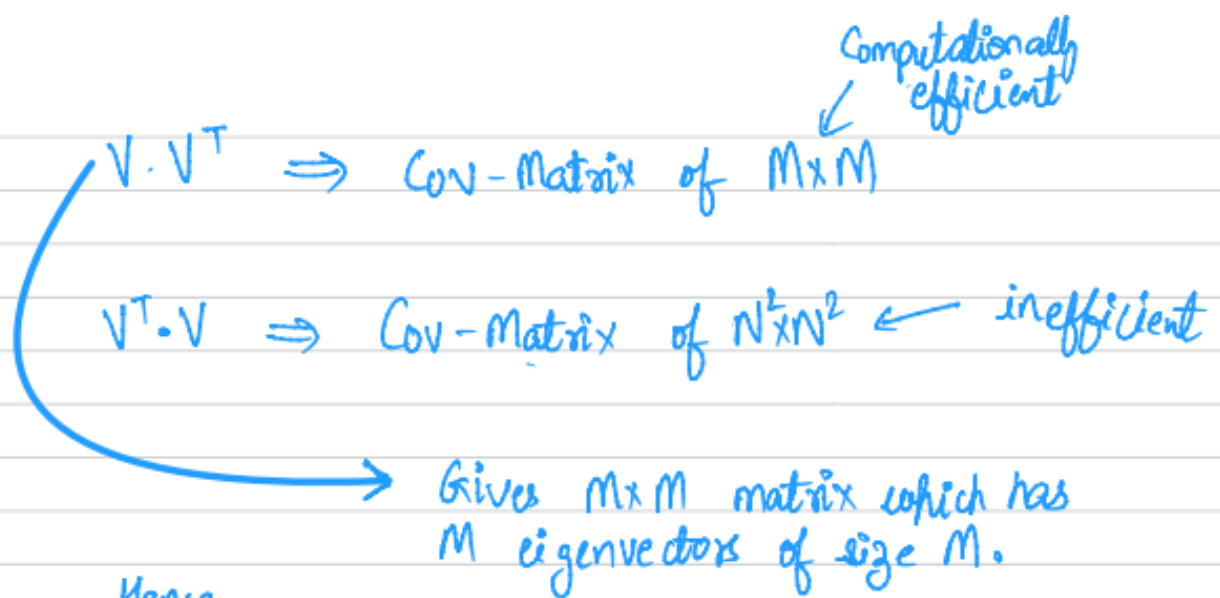 Computationally
efficient
V.Vᵀ ⇒ Cov-Matrix of M×M
Vᵀ.V ⇒ Cov-Matrix of N²×N² ← inefficient
Gives M×M matrix which has
M eigenvectors of size M.
Hence